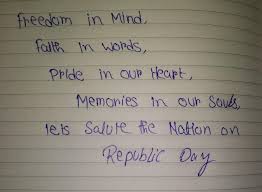 freedom in Mind,
faith in words,
Pride in our Heart,
Memories in our Souls,
lets Salute the Nation on
Republic Day